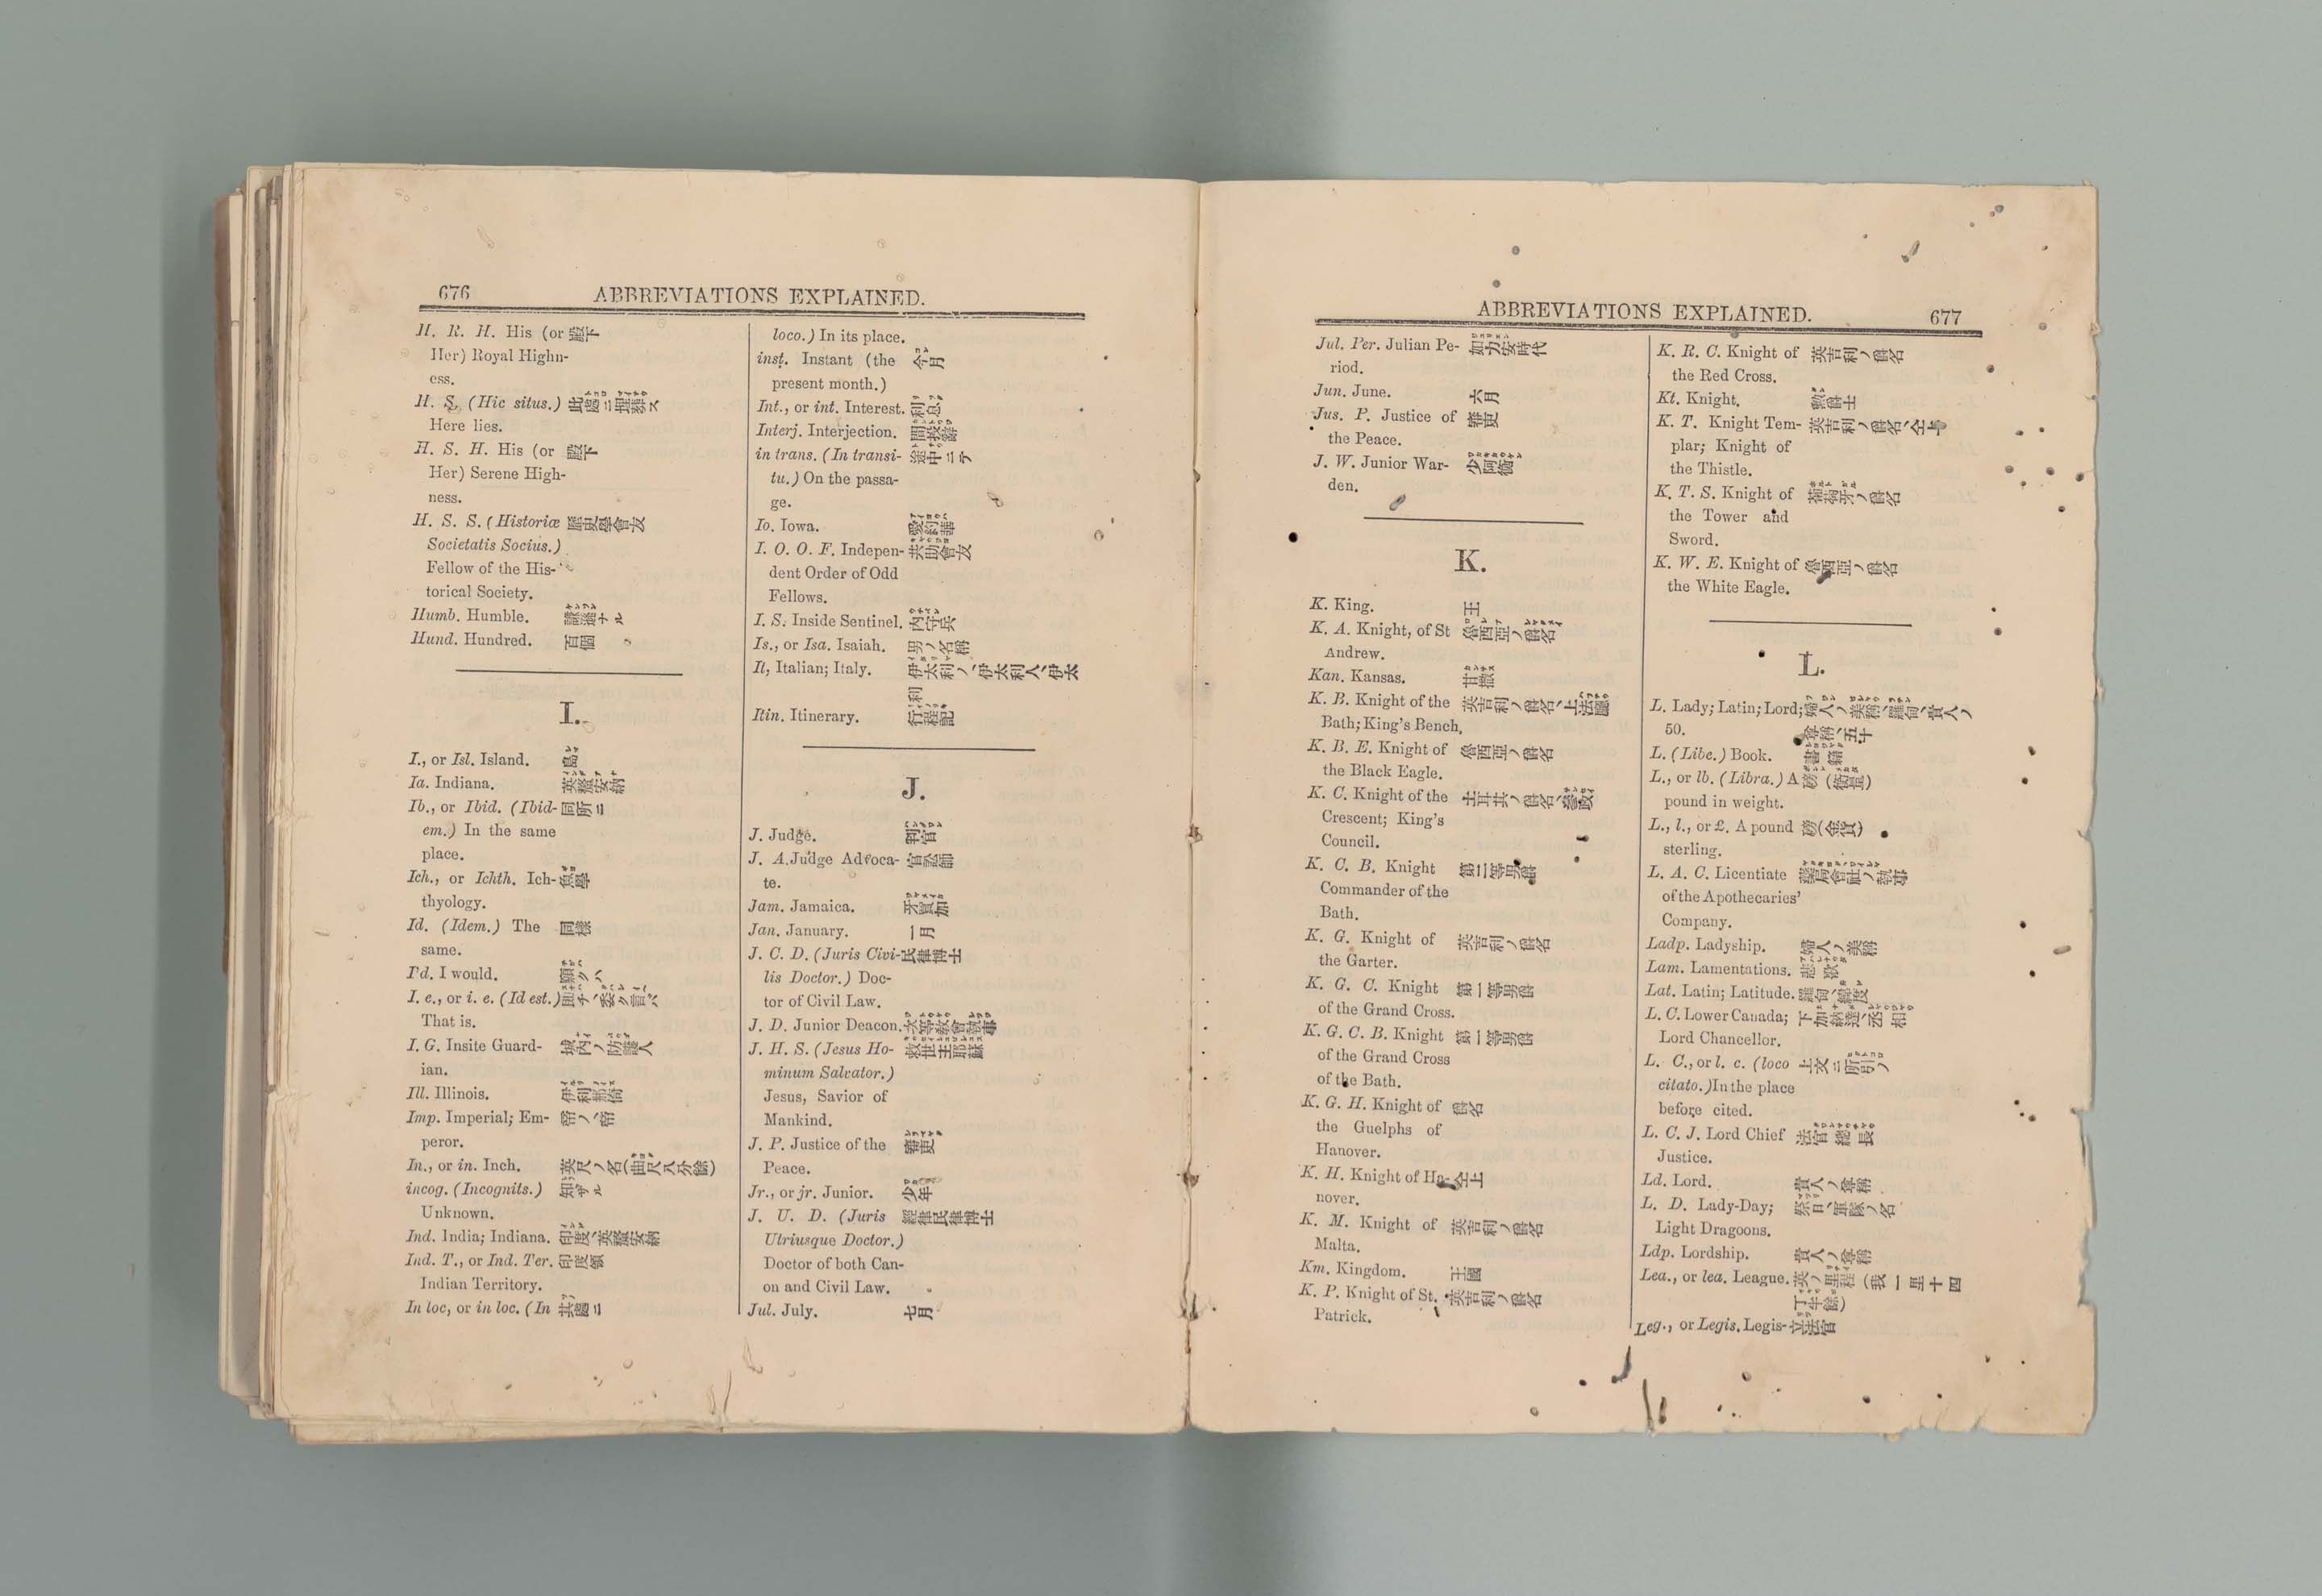 676 ABBREVIATIONS EXPLAINED.
H. R. H. His (or 殿下
Her) Royal Highn-
ess.
H. S. (Hic situs.) 此處ニ埋葬ス
Here lies.
H. S. H. His (or 殿下
Her) Serene High-
ness.
H. S. S. (Historiæ 歴史學會友
Societatis Socius.)
Fellow of the His-
torical Society.
Humb. Humble. 謙遜ナル
Hund. Hundred. 百個
I.
I., or Isl. Island. 島
Ia. Indiana. 英釐安納
Ib., or Ibid. (Ibid- 同所ニ
em.) In the same
place.
Ich., or Ichth. Ich- 魚學
thyology.
Id. (Idem.) The 同樣
same.
I'd. I would. 願クハ
I. e., or i. e. (Id est.) 即チ、委ク言ハ
That is.
I. G. Insite Guard- 城内ノ防護人
ian.
Ill. Illinois. 伊利
Imp. Imperial; Em- 帝ノ、帝
peror.
In., or in. Inch. 英尺ノ名(曲尺八分餘)
incog. (Incognits.) 知ザル
Unknown.
Ind. India; Indiana. 印度、英釐安納
Ind. T., or Ind. Ter. 印度領
Indian Territory.
In loc, or in loc. (In 其處ニ
loco.) In its place.
inst. Instant (the 今月
present month.)
Int., or int. Interest. 利息
Interj. Interjection. 間投辭
in trans. (In transi- 途中ニテ
tu.) On the passa-
ge.
Io. Iowa. 愛約華
I. O. O. F. Indepen- 共助會友
dent Order of Odd
Fellows.
I. S. Inside Sentinel. 内守兵
Is., or Isa. Isaiah. 男ノ名稱
It, Italian; Italy. 伊太利ノ、伊太利人、伊太
利
Itin. Itinerary. 行程記
J.
J. Judge. 判官
J. A. Judge Advoca- 官訟師
te.
Jam. Jamaica. 牙買加
Jan. January. 一月
J. C. D. (Juris Civi- 民律博士
lis Doctor.) Doc-
tor of Civil Law.
J. D. Junior Deacon. 次等教會執事
J. H. S. (Jesus Ho- 救世主耶蘇
minum Salvator.)
Jesus, Savior of
Mankind.
J. P. Justice of the 審吏
Peace.
Jr., or jr. Junior. 少年
J. U. D. (Juris 經律民律博士
Utriusque Doctor.)
Doctor of both Can-
on and Civil Law.
Jul. July. 七月
ABBREVIATIONS EXPLAINED. 677
Jul. Per. Julian Pe- 如力安時代
riod.
Jun. June. 六月
Jus. P. Justice of 審吏
the Peace.
J. W. Junior War- 少阿衞
den.
K.
K. King. 王
K. A. Knight, of St 魯西亞ノ爵名
Andrew.
Kan. Kansas. 甘撒
K. B. Knight of the 英吉利ノ爵名、上法廳
Bath; King's Bench,
K. B. E. Knight of 魯西亞ノ爵名
the Black Eagle.
K. C. Knight of the 土耳其ノ爵名、參政
Crescent; King's
Council.
K. C. B. Knight 第二等男爵
Commander of the
Bath.
K. G. Knight of 英吉利ノ爵名
the Garter.
K. G. C. Knight 第一等男爵
of the Grand Cross.
K. G. C. B. Knight 第一等男爵
of the Grand Cross
of the Bath.
K. G. H. Knight of 爵名
the Guelphs of
Hanover.
K. H. Knight of Ha- 仝上
nover.
K. M. Knight of 英吉利ノ爵名
Malta.
Km. Kingdom. 王國
K. P. Knight of St. 英吉利ノ爵名
Patrick.
K. R. C. Knight of 英吉利ノ爵名
the Red Cross.
Kt. Knight. 勳爵士
K. T. Knight Tem- 英吉利ノ爵名、仝上
plar; Knight of
the Thistle.
K. T. S. Knight of 葡萄牙ノ爵名
the Tower and
Sword.
K. W. E. Knight of 魯西亞ノ爵名
the White Eagle.
L.
L. Lady; Latin; Lord; 婦人ノ美稱、羅甸、貴人ノ
50. 尊稱、五十
L. (Libe.) Book. 書籍
L., or lb. (Libra.) A 磅(衡量)
pound in weight.
L., l., or £. A pound 磅(金貨)
sterling.
L. A. C. Licentiate 藥局會社ノ執事
of the Apothecaries'
Company.
Ladp. Ladyship. 婦人ノ美稱
Lam. Lamentations. 悲歎
Lat. Latin; Latitude. 羅甸、緯度
L. C. Lower Canada; 下加納達、丞相
Lord Chancellor.
L. C., or l. c. (loco 上文ニ所引ノ
citato.) In the place
before cited.
L. C. J. Lord Chief 法官總長
Justice.
Ld. Lord. 貴人ノ尊稱
L. D. Lady-Day; 祭日、軍隊ノ名
Light Dragoons.
Ldp. Lordship. 貴人ノ尊稱
Lea., or lea. League. 英ノ里程(我一里十四
丁半餘)
Leg., or Legis. Legis- 立法官